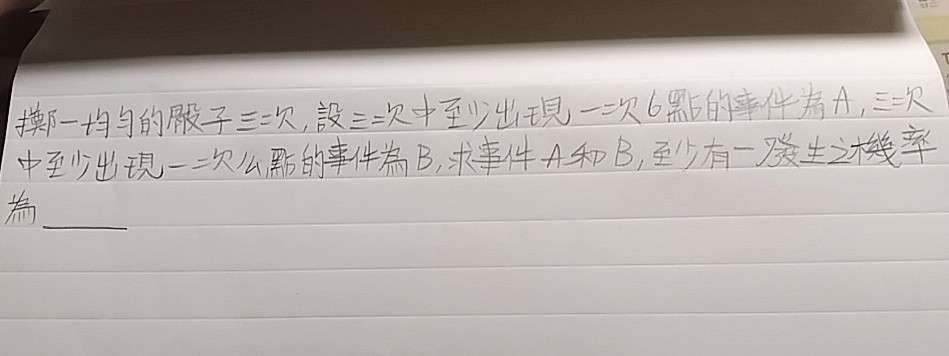 擲一均勻的骰子三次,設三次中至少出現一次6點的事件為A,三次
中至少出現一次么點的事件為B,求事件A和B,至少有一發生之機率
為